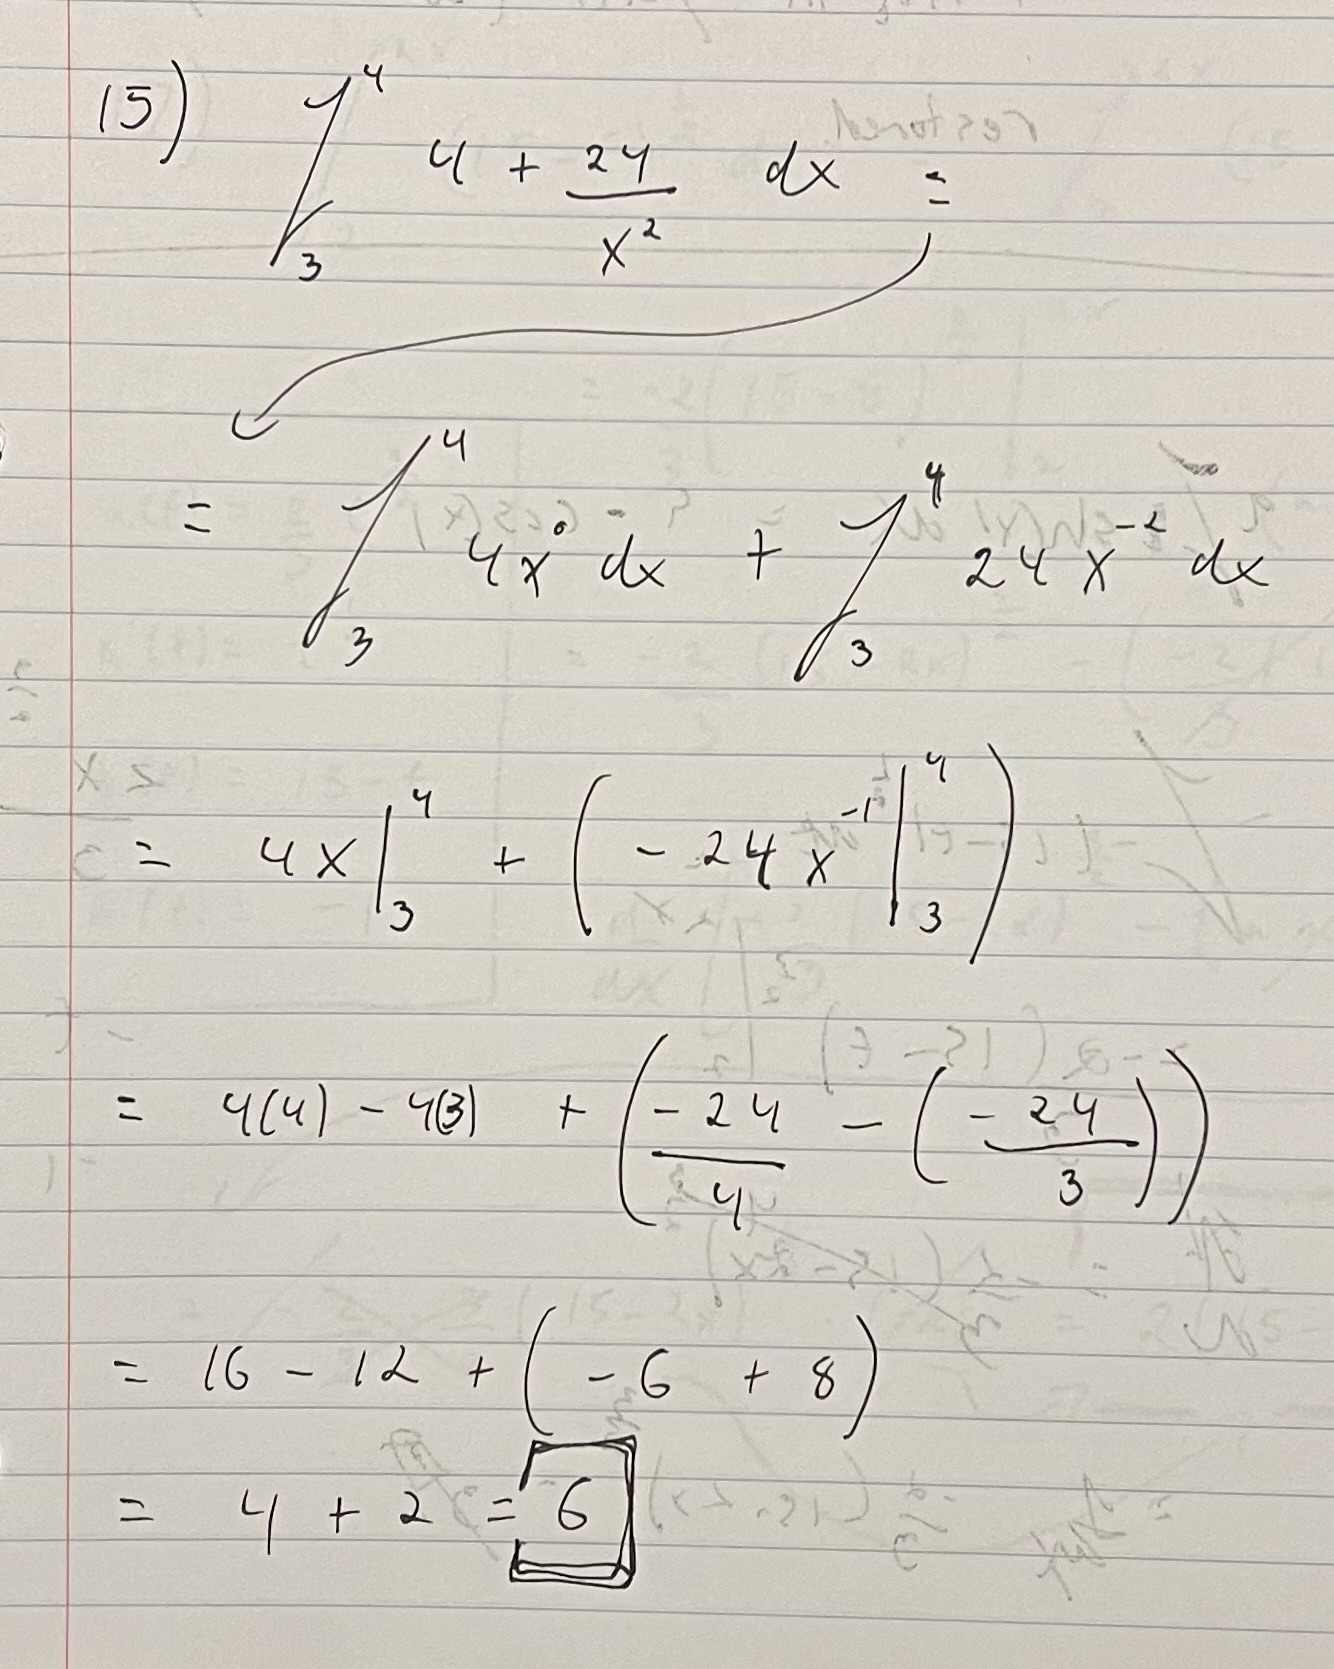 15) ∫₃⁴ 4 + 24/x² dx =
= ∫₃⁴ 4x⁰ dx + ∫₃⁴ 24x⁻² dx
= 4x|₃⁴ + (-24x⁻¹|₃⁴)
= 4(4) - 4(3) + (-24/4 - (-24/3))
= 16 - 12 + (-6 + 8)
= 4 + 2 = 6